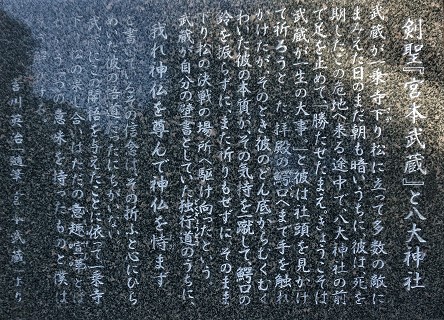 剣聖『宮本武蔵』と八大神社
武蔵が一乗寺下り松に立って多数の敵に
まみえた日のまだ朝も暗いうちに、彼は死を
期したこの危地へ来る途中で、八大神社の前
で足を止めて「勝たせたまえ。きょうこそは
武蔵が一生の大事。」と彼は社頭を見かけ
て祈ろうとした。拝殿の鰐口へまで手を触れ
かけたが、そのとき彼のどん底からむくむく
わいた彼の本質が、その気持を一蹴して、鰐口の
鈴を振らずに、また祈りもせずに、そのまま
下り松の決戦の場所へ駆け向ったという。
武蔵が自分の壁書としていた独行道のうちに、
我れ神仏を尊んで神仏を恃まず
と書いているその信念は、その折ふと心にひら
めいた彼の悟道だったにちがいない。
にこの開悟を与えたことに依って一乗寺
下り松の果し合いはただの意趣喧嘩とは
つの意味を持ったものと僕は
吉川英治 随筆 宮本武蔵より